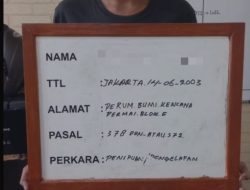 NAMA :
TTL : JAKARTA 14-06-2003
ALAMAT : PERUM. BUMI KENCANA
PERMAI BLOK F
PASAL : 378 DAN ATAU 372
PERKARA : PENIPUAN / PENGGELAPAN